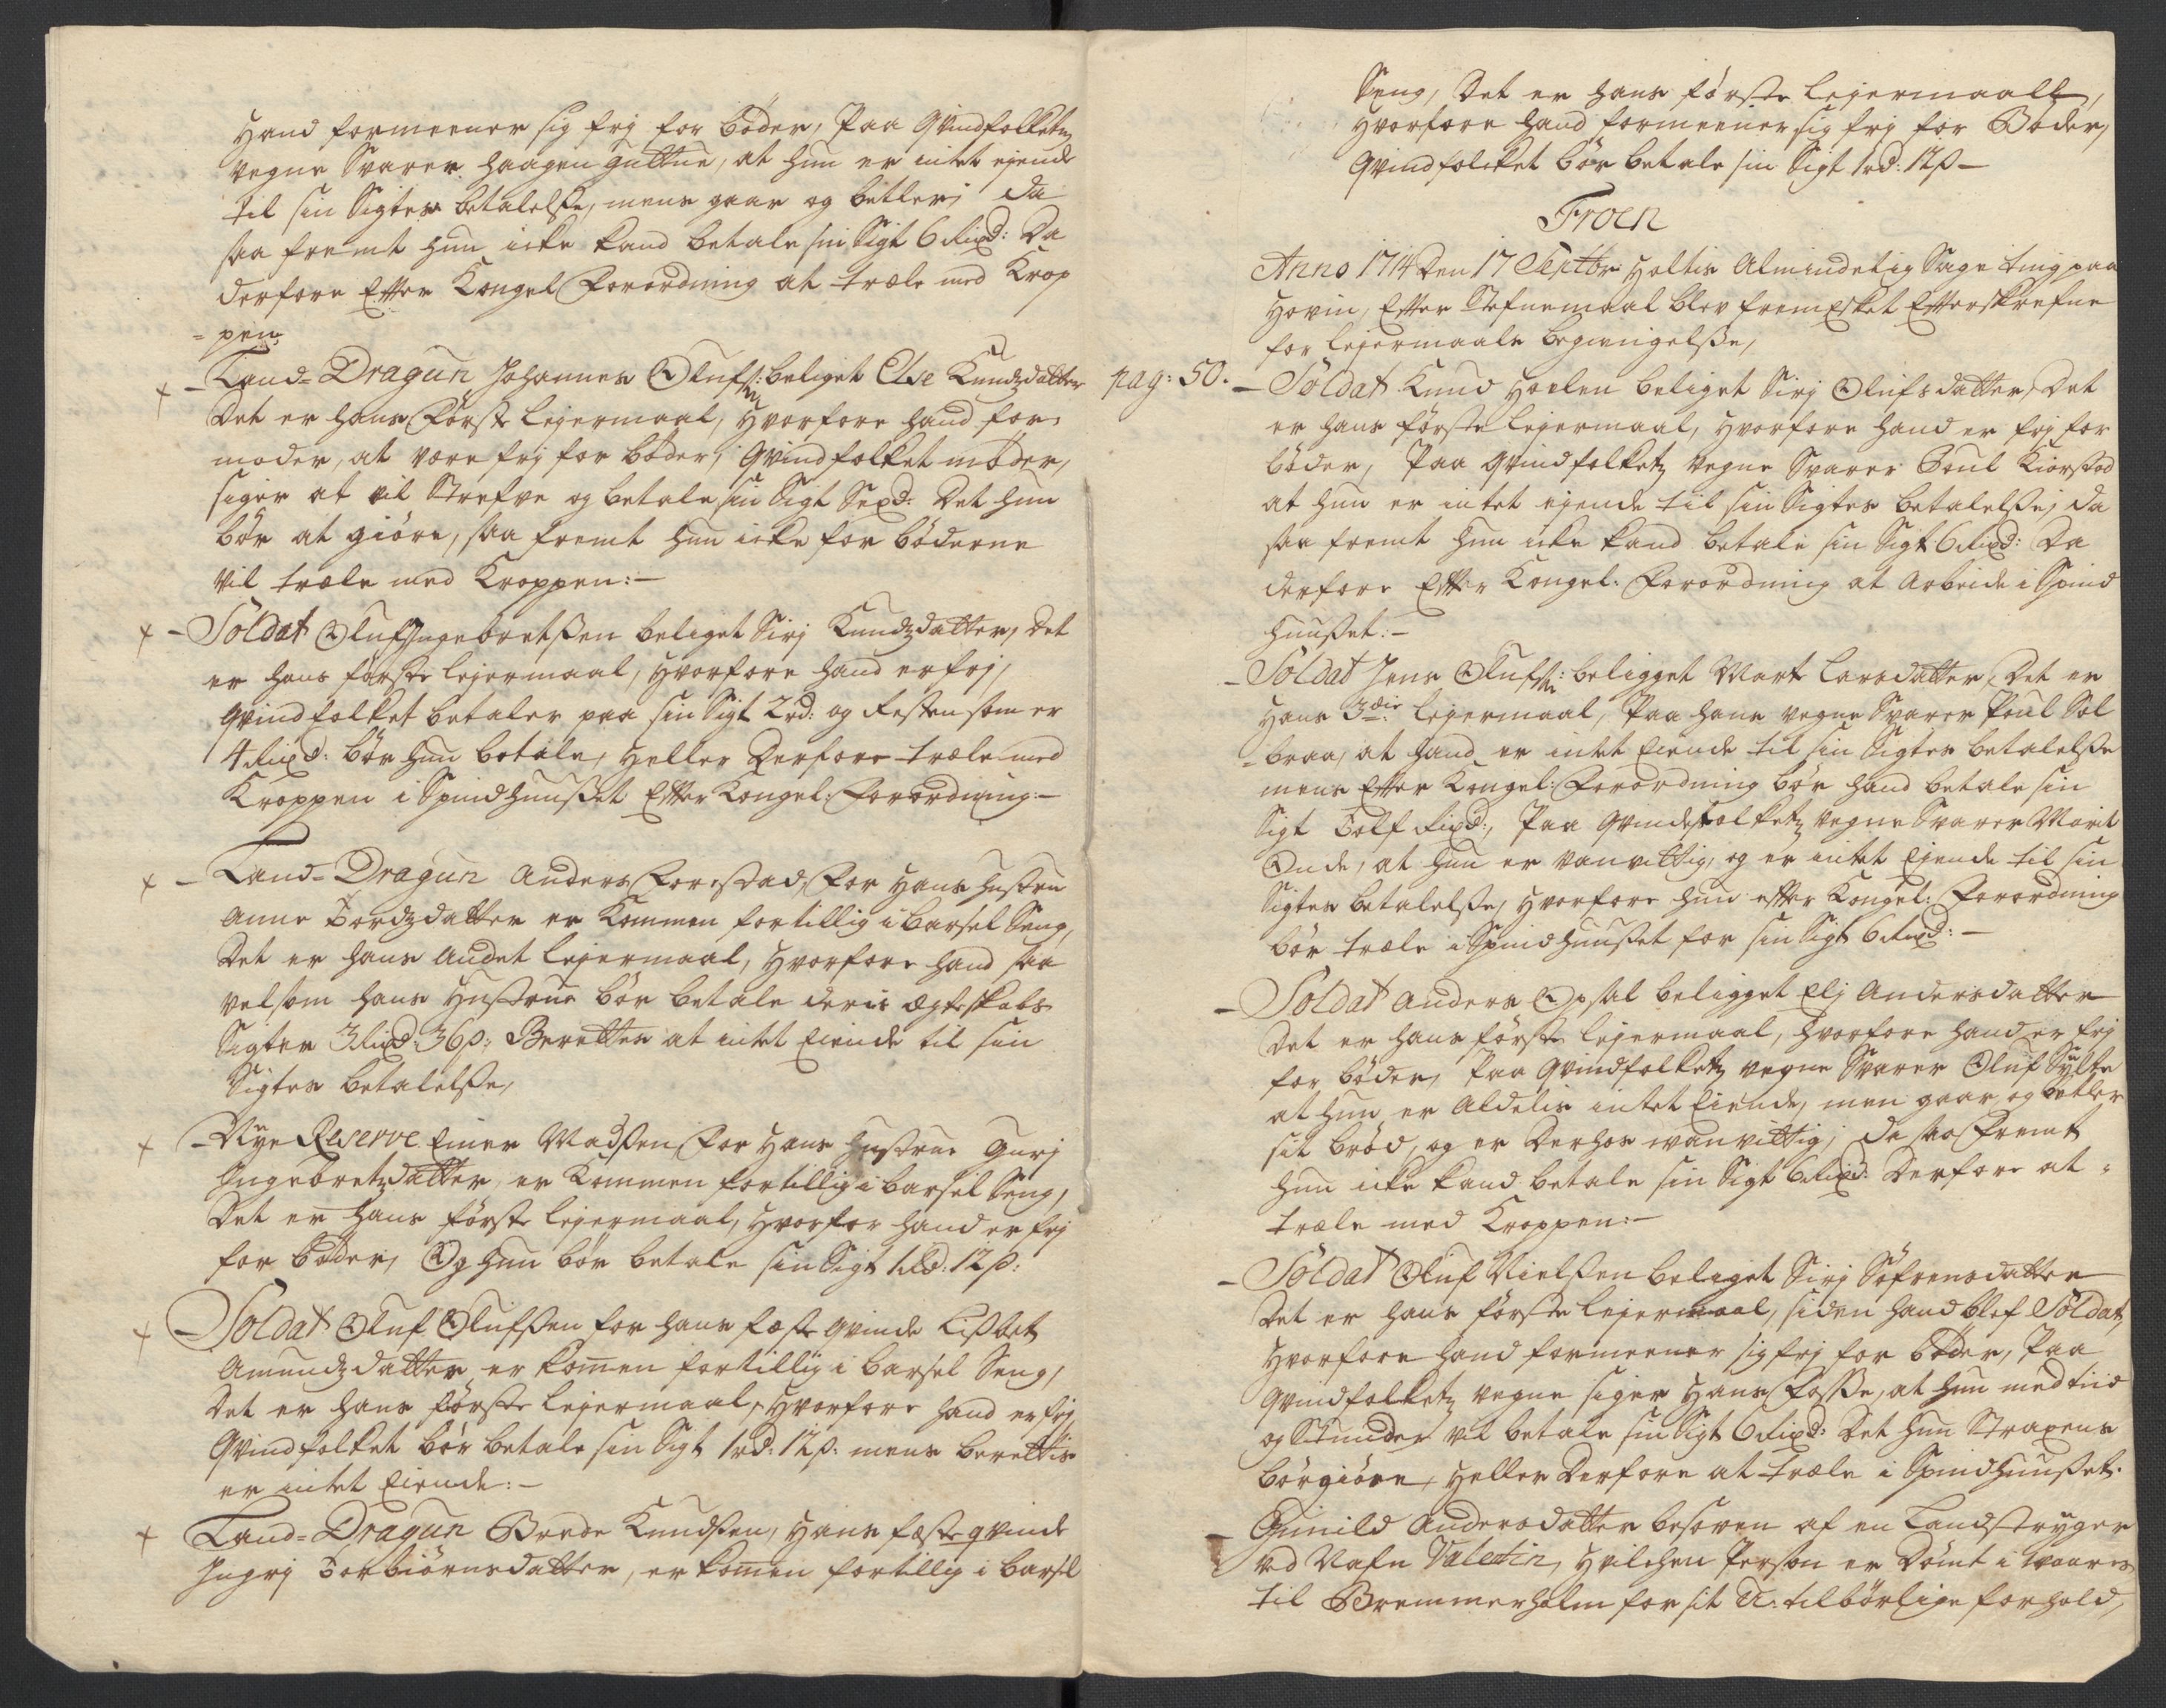 Hand formeener sig frj for bøder, Paa Qvindfolketz
vegne Svarer Haagen Guttue, at hun er intet ejende
til sin Sigtes betalelsse, mens gaar og betler, da
saa fremt hun icke kand betale sin Sigt 6 Rixd: Da
derfore Efter Kongel Forordning at træle med Krop
=pen,
Land=Dragun Johannes Olufs: beliget Else Knudzdatter
Det er hans Første lejermaal, Hvorfore hand for
moder, at være frj for bøder, Qvindfolket møder,
siger at vil Strefve og betale sin Sigt Sexd: Det hun
bør at giøre, saa fremt hun icke for bøderne
vil træle med Kroppen:—
– Soldat Oluf Ingebretssen beliget Sirj Knudzdatter, Det
er hans første lejermaal, Hvorfore hand er frj,
Qvindfolket betaler paa sin Sigt 2 rd: og Resten som er
4 Rixd: bør hun betale, Heller Derfore træle med
Kroppen i Spindhuusset Efter Kongel: Forordning:—
– Land=Dragun Anders Forestad, For Hans Hustru
Anne Tordzdatter er Kommen fortillig i barsel Seng,
Det er hans Andet lejermaal, Hvorfore hand saa
velsom hans Hustrue bør betale deris Egteskabs
Sigter 3 Rixd: 36 s:, Berettes at intet Eiende til sin
Sigtes betalelsse,
– Nye Reserve Einer Madssen, For Hans Hustrue Gurj
Ingebretzdatter, er Kommen fortillig i barsel Seng,
Det er hans første lejermaal, Hvorfor hand er frj
for bøder, Og hun bør betale sin Sigt 1 Rd: 12 s:
Soldat Oluf Olufssen for hans fæste Qvinde Lissbet
Amundzdatter, er komen fortillig i barsel Seng,
Det er hans første lejermaal, Hvorfore hand er frj
Qvindfolket bør betale sin Sigt 1 rd: 12 s: mens berettis
er intet Eiende:—
Land=Dragun Brede Knudssen, Hans fæste qvinde
Ingrj Torbiørnsdatter, er komen fortillig i barsel
Seng, Det er hans første lejermaall,
Hvorfore hand formeener sig frj for Bøder,
Qvindfolcket bør betale sin Sigt 1 rd: 12 s—
Froen
Anno 1714 Den 17 Septbr Holtis Almindelig Sage ting paa
Hovin, Efter Stefnemaal blev fremEsket Efterskrefne
for lejermaals begængelsse,
pag: 50. – Soldat Knud Hoelen beliget Sirj Olufsdatter, Det
er hans første lejermaal, Hvorfore hand er frj for
bøder, Paa Qvindfolketz vegne Svarer Poul Kiorstad
at hun er intet ejende til sin Sigtes betalelsse, da
saa fremt hun icke kand betale sin Sigt 6 Rixd: Da
derfore Efter Kongel: Forordning at Arbeide i Spind
huusset:—
– Soldat Jens Olufs: beligget Marte Larsdatter, Det er
Hans 3die lejermaal, Paa hans vegne Svarer Poul Sol
=braa, at hand er intet Eiende til sin Sigtes betalelsse
mens Efter Kongel: Forordning bør hand betale sin
Sigt Tolf Rixd:, Paa Qvindefolketz vegne Svarer Marit
Onde, at hun er vanvittig, og er intet Ejende til sin
Sigtes betalelsse, Hvorfore hun efter Kongel: Forordning
bør træle i Spindhuusset for sin Sigt 6 Rixd:—
– Soldat Anders Opsal beligget Elj Andersdatter
Det er hans første lejermaal, Hvorfore hand er frj
for bøder, Paa Qvindfolketz vegne Svarer Oluf Sylte
at hun er Aldelis intet Eiende, men gaar og betler
sit brød, og er Derhos wanvittig, da saa fremt
hun icke kand betale sin Sigt 6 Rixd: Derfore at
træle med Kroppen:—
– Soldat Oluf Nielssen beliget Sirj Søfrensdatter
Det er hans første lejermaal, siden hand blef Soldat,
Hvorfore hand formeener sig frj for bøder, Paa
Qvindfolketz vegne siger Hans Fosse, at hun med tiid
og Stunder vil betale sin Sigt 6 Rixd: Det hun Straxens
bør giøre, Heller Derfore at træle i Spindhuusset.
– Gunild Andersdatter besoven af en Landstryger
ved Nafn Valentin, Hvilchen Person er Dømt i waares
til Bremmerholm for sit U=tilbørlige forhold,